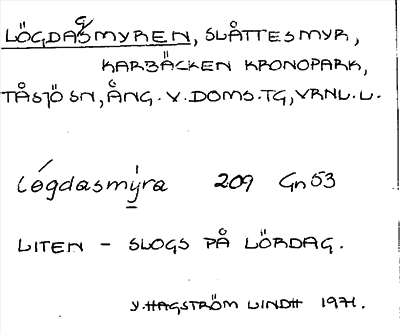 LÖGDAGSMYREN, SLÅTTESMYR,
KARBÄCKEN KRONOPARK,
TÅSJÖ SN, ÅNG. V. DOMS. TG, VRNL. L.
lógdasmy̲ra 209 Gn 53
LITEN - SLOGS PÅ LÖRDAG.
HAGSTRÖM LINDH 1971.